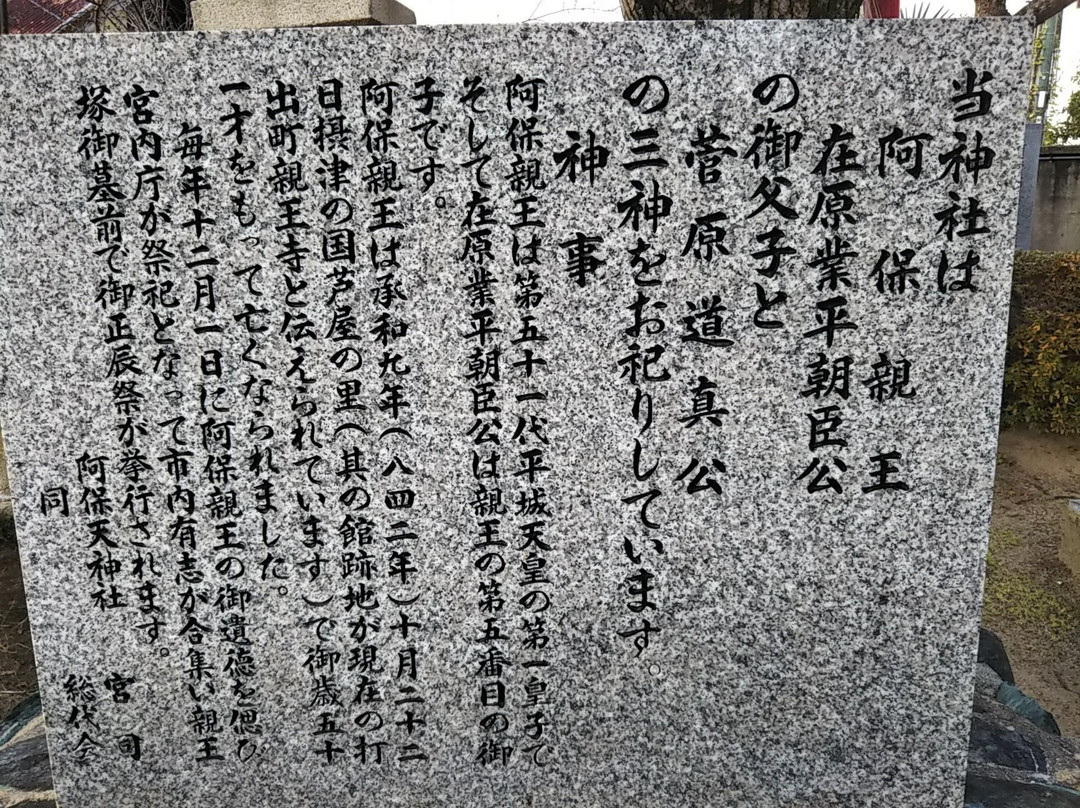 当神社は
阿保親王
在原業平朝臣公
の御父子と
菅原道真公
の三神をお祀りしています。
神事
阿保親王は第五十一代平城天皇の第一皇子で
そして在原業平朝臣公は親王の第五番目の御
子です。
阿保親王は承和九年(八四二年)十月二十二
日摂津の国芦屋の里(其の館跡地が現在の打
出町親王寺と伝えられています)で御歳五十
一才をもって亡くなられました。
毎年十二月一日に阿保親王の御遺徳を偲び
宮内庁が祭祀となって市内有志が合集い親王
塚御墓前で御正辰祭が挙行されます。
阿保天神社 宮司
同 総代会